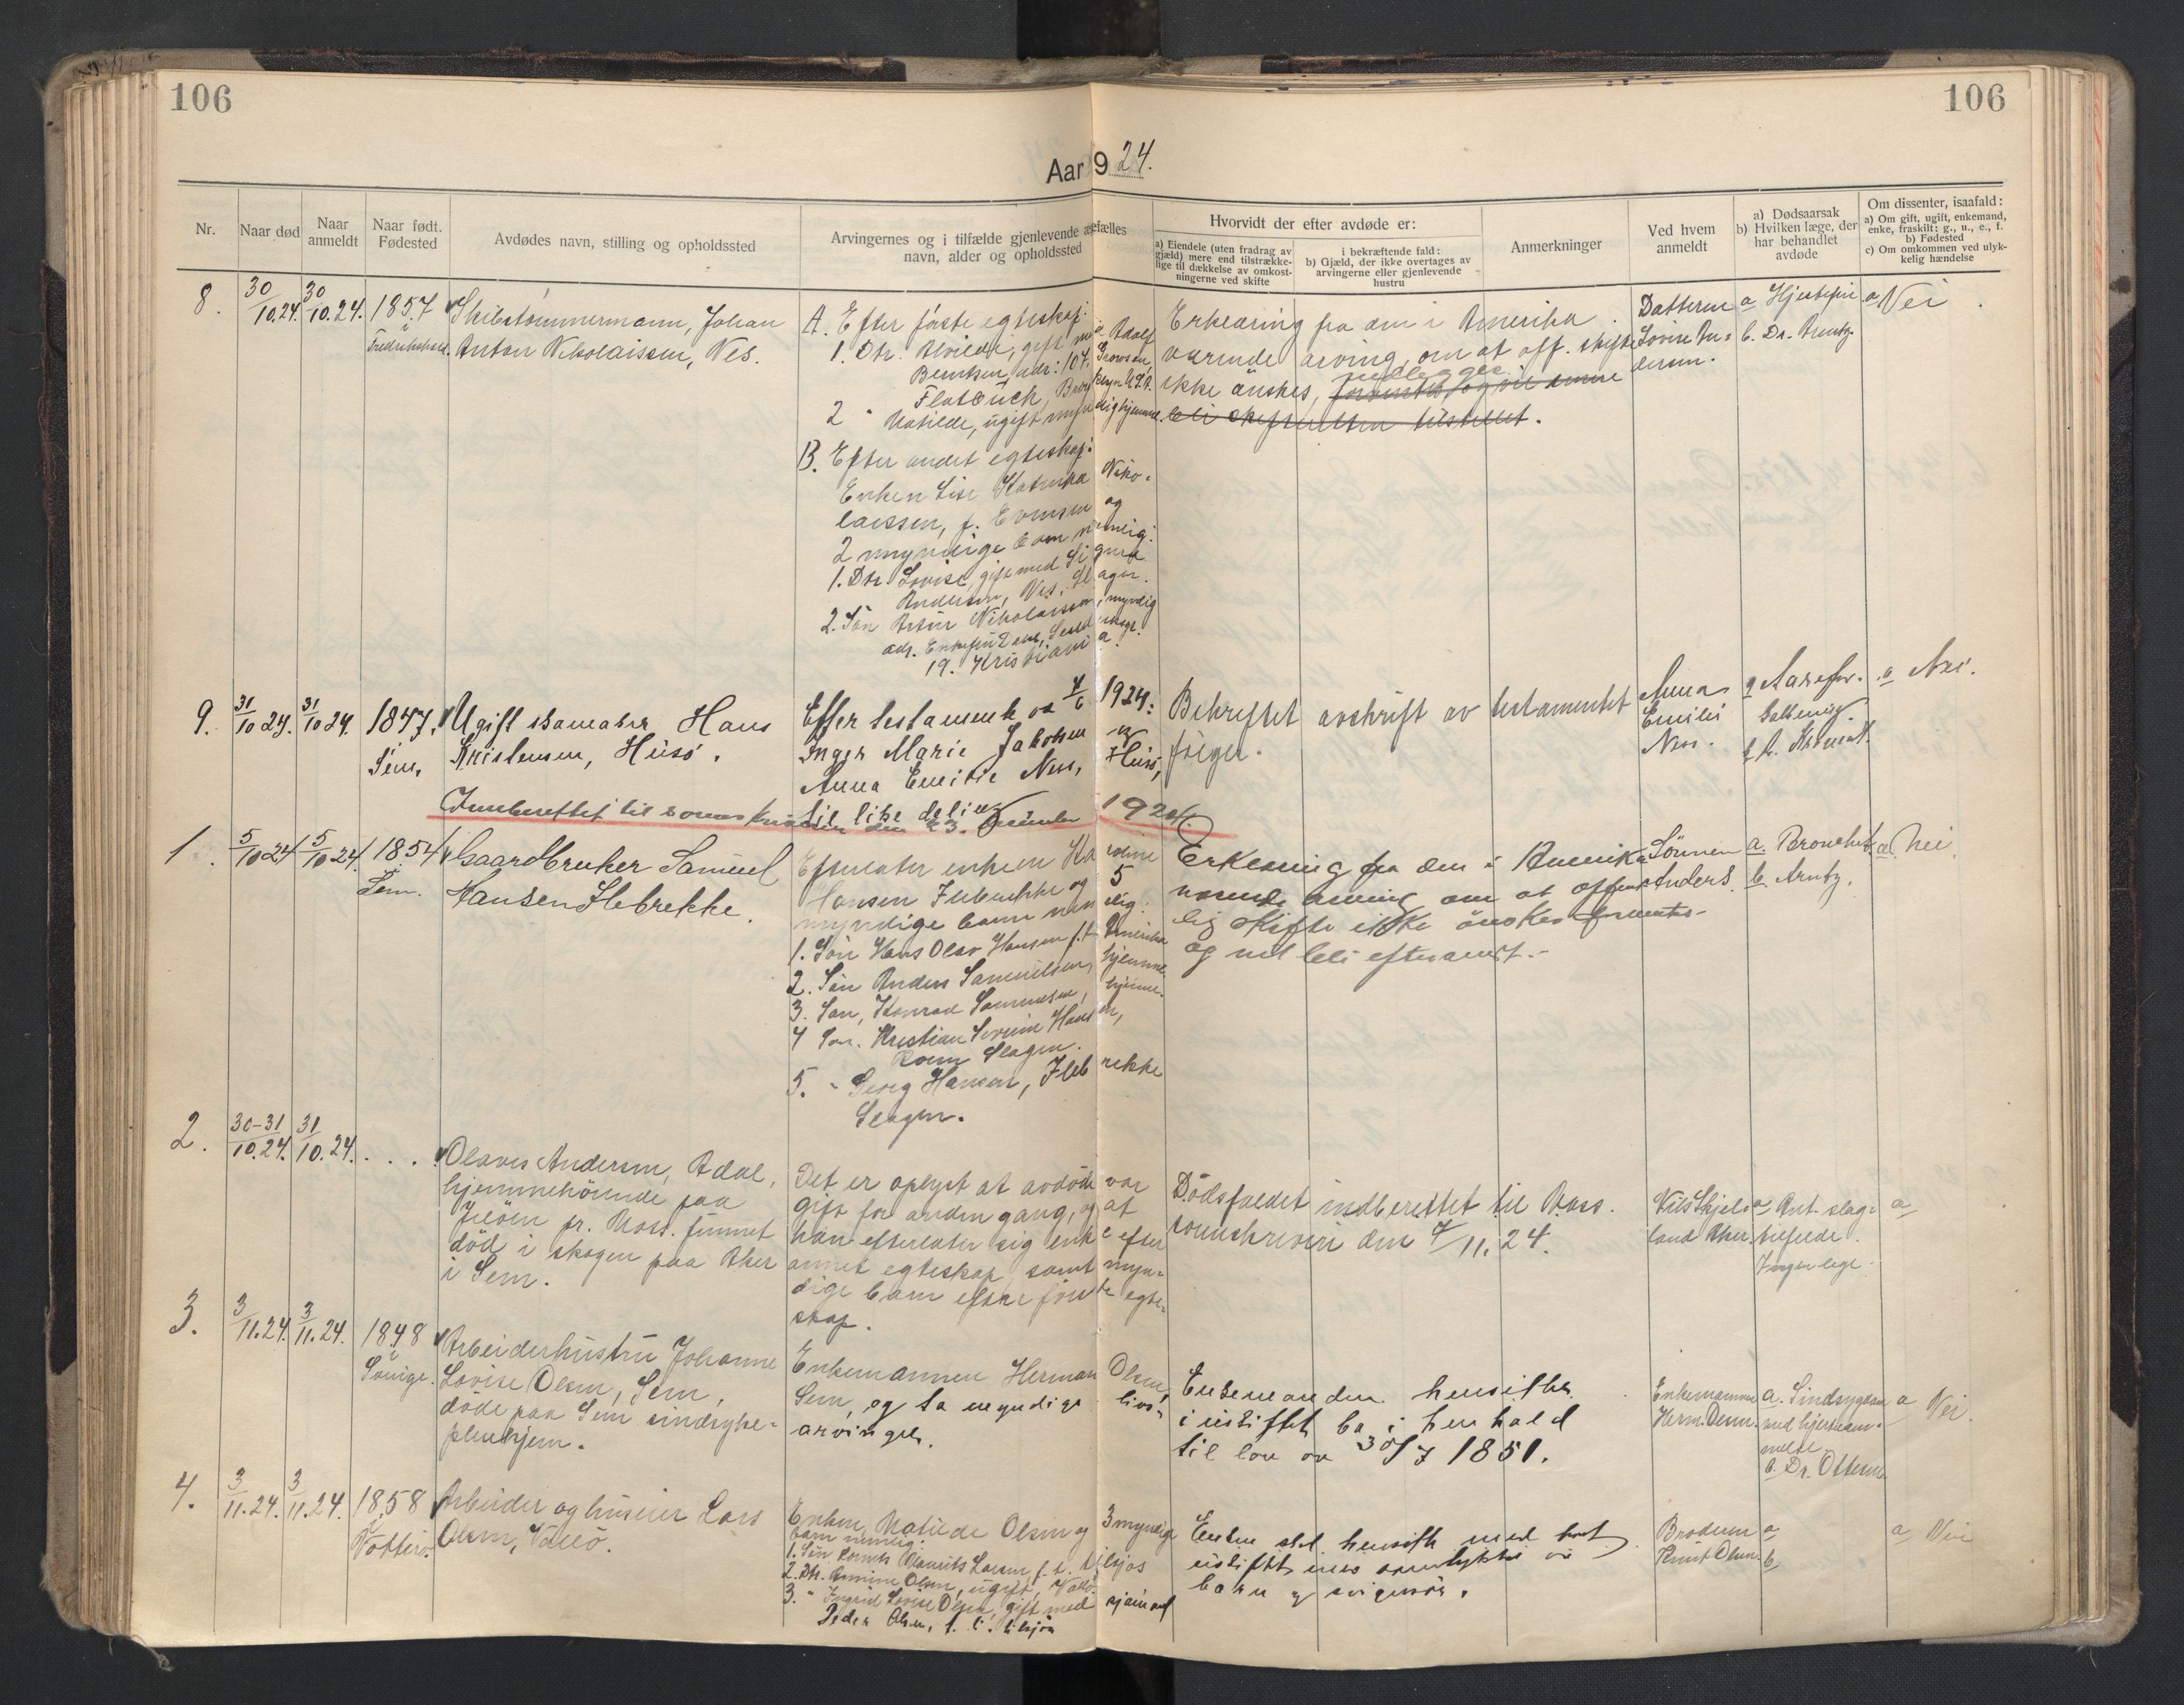 106
106
Aar 1924.
Nr.
Naar død
Naar anmeldt
Naar født. Fødested
Avdødes navn, stilling og opholdssted
Arvingernes og i tilfælde gjenlevende ægtefælles
navn, alder og opholdssted
Hvorvidt der efter avdøde er:
a) Eiendele (uten fradrag av
gjæld) mere end tilstrække-
lige til dækkelse av omkost-
ningerne ved skifte
i bekræftende fald:
b) Gjæld, der ikke overtages av
arvingerne eller gjenlevende
hustru
Anmerkninger
Ved hvem
anmeldt
a) Dødsaarsak
b) Hvilken læge, der
har behandlet
avdøde
Om dissenter, isaafald:
a) Om gift, ugift, enkemand,
enke, fraskilt: g., u., e., f.
b) Fødested
c) Om omkommen ved ulyk-
kelig hændelse
8. 30/10.24. 30/10.24. 1857 i Fredrikshald.
Skibstømmermann, Johan
Anton Nikolaissen, Nes.
A. Efter første egteskap:
1. Dtr. Alvilde, gift m. Adolf
Berntsen, adr: 107.
Flatbuch, Brooklyn U.S.A.
2 " Matilde, ugift myndig hjemme.
B. Efter andet egteskap:
Enken Lise Katrine Niko-
laissen, f. Evensen og
2 myndige barn nemlig:
1. Dtr. Lovise, gift med Sigurd
Andersen, Nes, Slagen.
2. Søn Artur Nikolaissen, myndig
adr. Enkefru Dahl,
19. Kristiania.
Erklæring fra den i Amerika
værende arving, om at off. skifte
ikke ønskes, vedlegges
bli skifteretten tilstillet.
Datteren
Lovise An-
dersen.
a Hjertefeil
b. Dr. Arentz.
a Nei
9. 31/10 24. 31/10 24. 1847. Sem.
Ugift skomaker Hans
Kristensen, Husø.
Efter testament av 4/6 1924:
Inger Marie Jakobsen og
Anna Emilie Ness, Husø,
til like deling
Bekreftet avskrift av testamentet
følger.
Anna
Emilie
Ness.
a Aarefor-
kalkning.
a Nei.
Innberettet til sorenskriveren den 23. Desember 1924.
1. 5/10 24 5/10 24. 1854 i Sem.
Gaardbruker Samuel
Hansen Ilebrekke.
Efterlater enken Karoline
Hansen Ilebrekke og 5
myndige barn nemlig:
1. Søn Hans Olav Hansen f.t. Amerika
2. Søn Anders Samuelsen, hjemme.
3. Søn, Konrad Samuelsen, hjemme.
4 Søn. Kristian Severin Hansen,
Roen Slagen.
5. " Georg Hansen, Ilebrekke
Slagen.
Erklæring fra den i Amerika
værende arving om at offent-
lig skifte ikke ønskes forventes
og vil bli eftersendt.-
Sønnen
Anders.
a. Bronchit.
b. Arntz.
a. Nei
2. 30-31/10.24. 31/10.24. . . .
Olaves Andersen, Adal,
hjemmehørende paa
Jeløen pr. Moss. funnet
død i skogen paa Aker
i Sem.
Det er oplyst at avdøde var
gift for anden gang, og at
han efterlater sig enke efter
annet egteskap samt myn-
dige barn efter første egte-
skap.
Dødsfaldet indberettet til Moss.
sorenskriveri den 4/11.24.
Nils Skjels-
land Aker.
a Ant. slag-
tilfelde.
Ingen lege.
a
3. 3/11.24. 3/11.24. 1848 i Sverige.
Arbeiderhustru Johanne
Lovise Olsen, Sem,
døde paa Sem sindsyke-
pleiehjem.
Enkemannen Herman Olsen,
Sem, og to myndige livs-
arvinger.
Enkemanden hensitter
i uskiftet bo i henhold
til lov av 30/7 1851.
Enkemannen
Herm. Olsen.
a. Sindssygdom
med hjernebet-
b. Dr. Ottersen
a Nei.
4. 3/11.24. 3/11.24. 1858 i Nøtterø.
Arbeider og huseier Lars
Olsen, Vallø.
Enken, Matilde Olsen og 3 myndige
barn nemlig:
1. Søn Mauritz Larsen f.t. tilsjøs
2. Dtr. Olsen, ugift, Vallø.
3. " Ingrid Lovise Olsen, gift med sjømand
Peder Olsen, f. t. tilsjøs
Enken skal hensitte med boet
uskiftet med samtykke av
barn og svigersøn.
Broderen
Knut Olsen.
a
b
a Nei